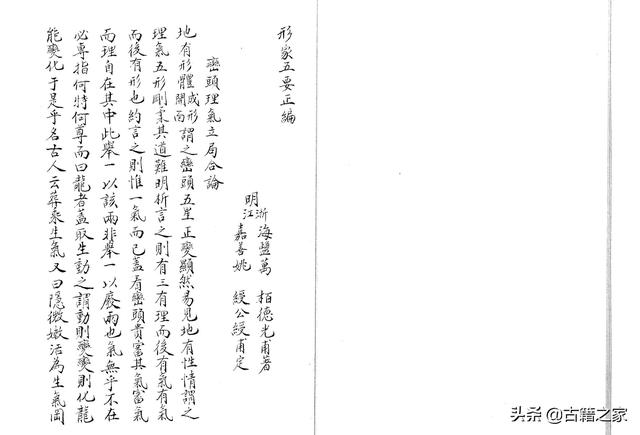 形家五要正編
明浙江海鹽萬栢德光甫著
嘉善姚綬公綬甫定
巒頭理氣立局合論
地有形體成形開面謂之巒頭五星正變顯然易見地有性情謂之
理氣五形剛柔其道難明析言之則有三有理而後有氣有氣
而後有形也約言之則惟一氣而已蓋看巒頭貴富其氣富氣
而理自在其中此舉一以該兩非舉一以廢兩也氣無乎不在
必專指何特何尊而曰龍者蓋取生動之謂動則變變則化龍
能變化于是乎名古人云葬乘生氣又曰隱微嫩活為生氣岡
头条@古籍之家